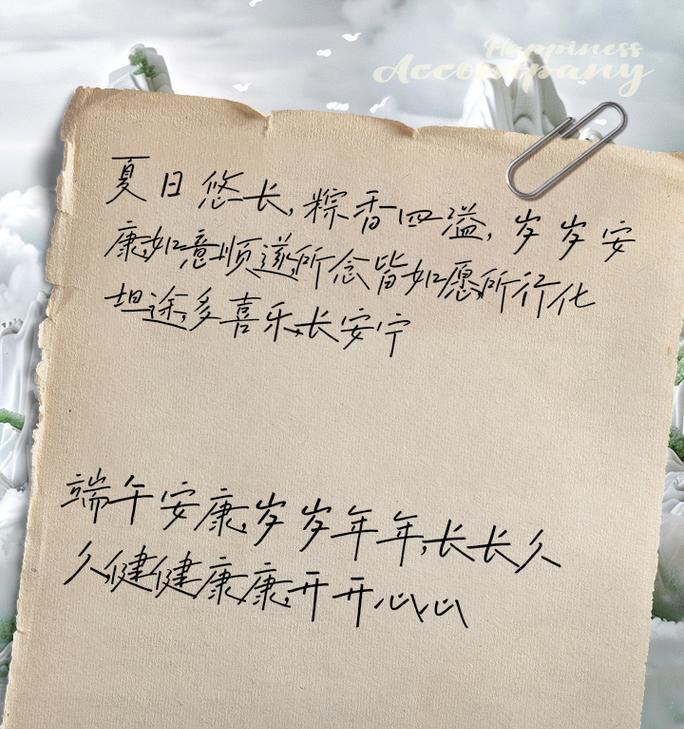 Happiness
Accompany
夏日悠长,粽香四溢,岁岁安
康,如意顺遂,所念皆如愿,所行化
坦途,多喜乐,长安宁
端午安康,岁岁年年,长长久
久,健健康康,开开心心